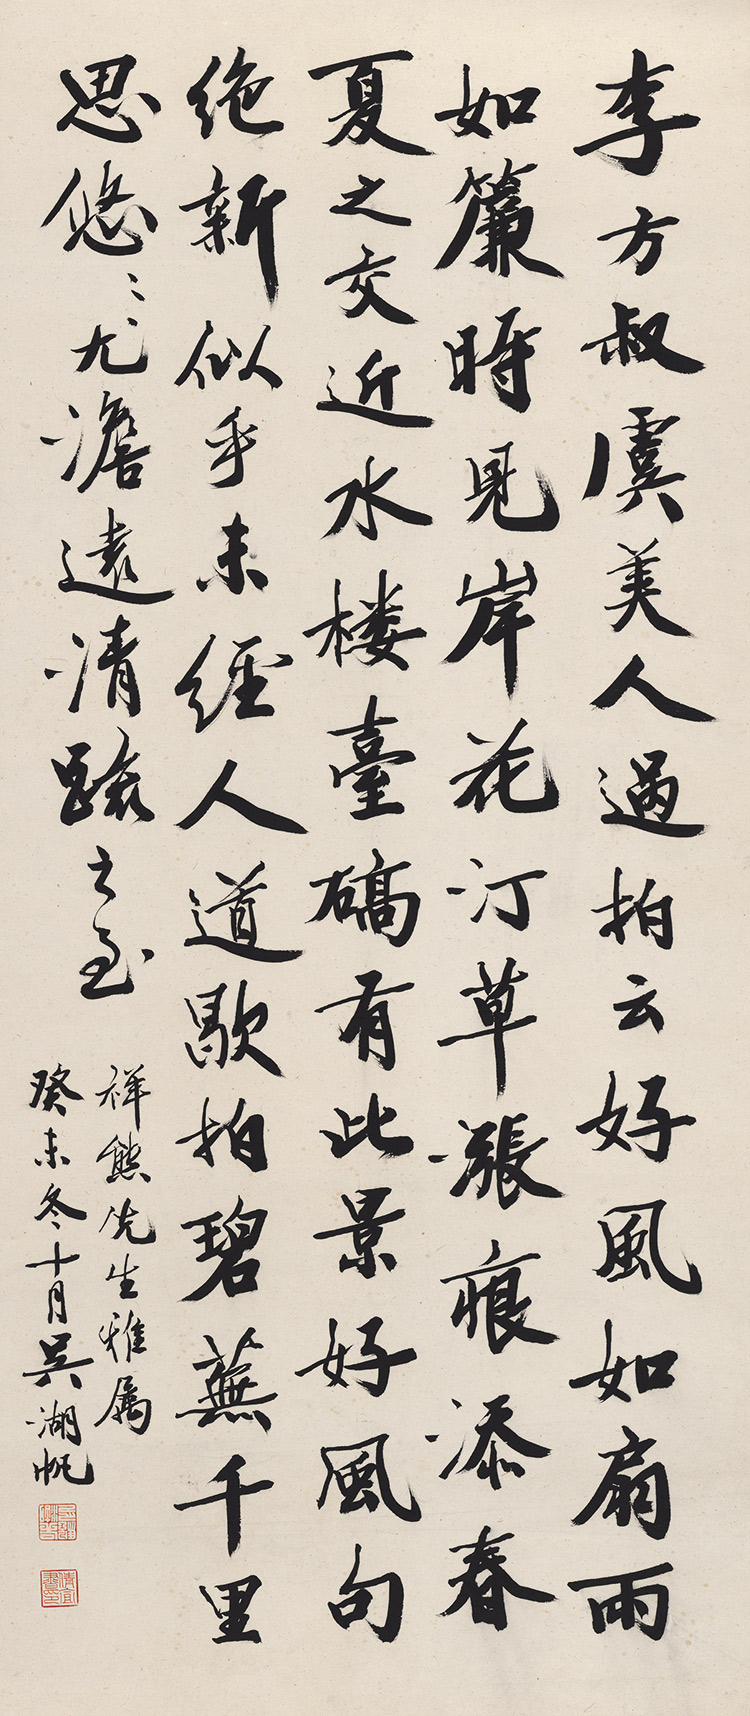 李方叔虞美人過拍云好風如扇雨
如簾時見岸花汀草漲痕添春
夏之交近水楼臺碻有此景好風句
絶新似乎未經人道歇拍碧蕪千里
思悠〻尤澹遠清疏之至
祥熊先生雅属
癸未冬十月吴湖帆